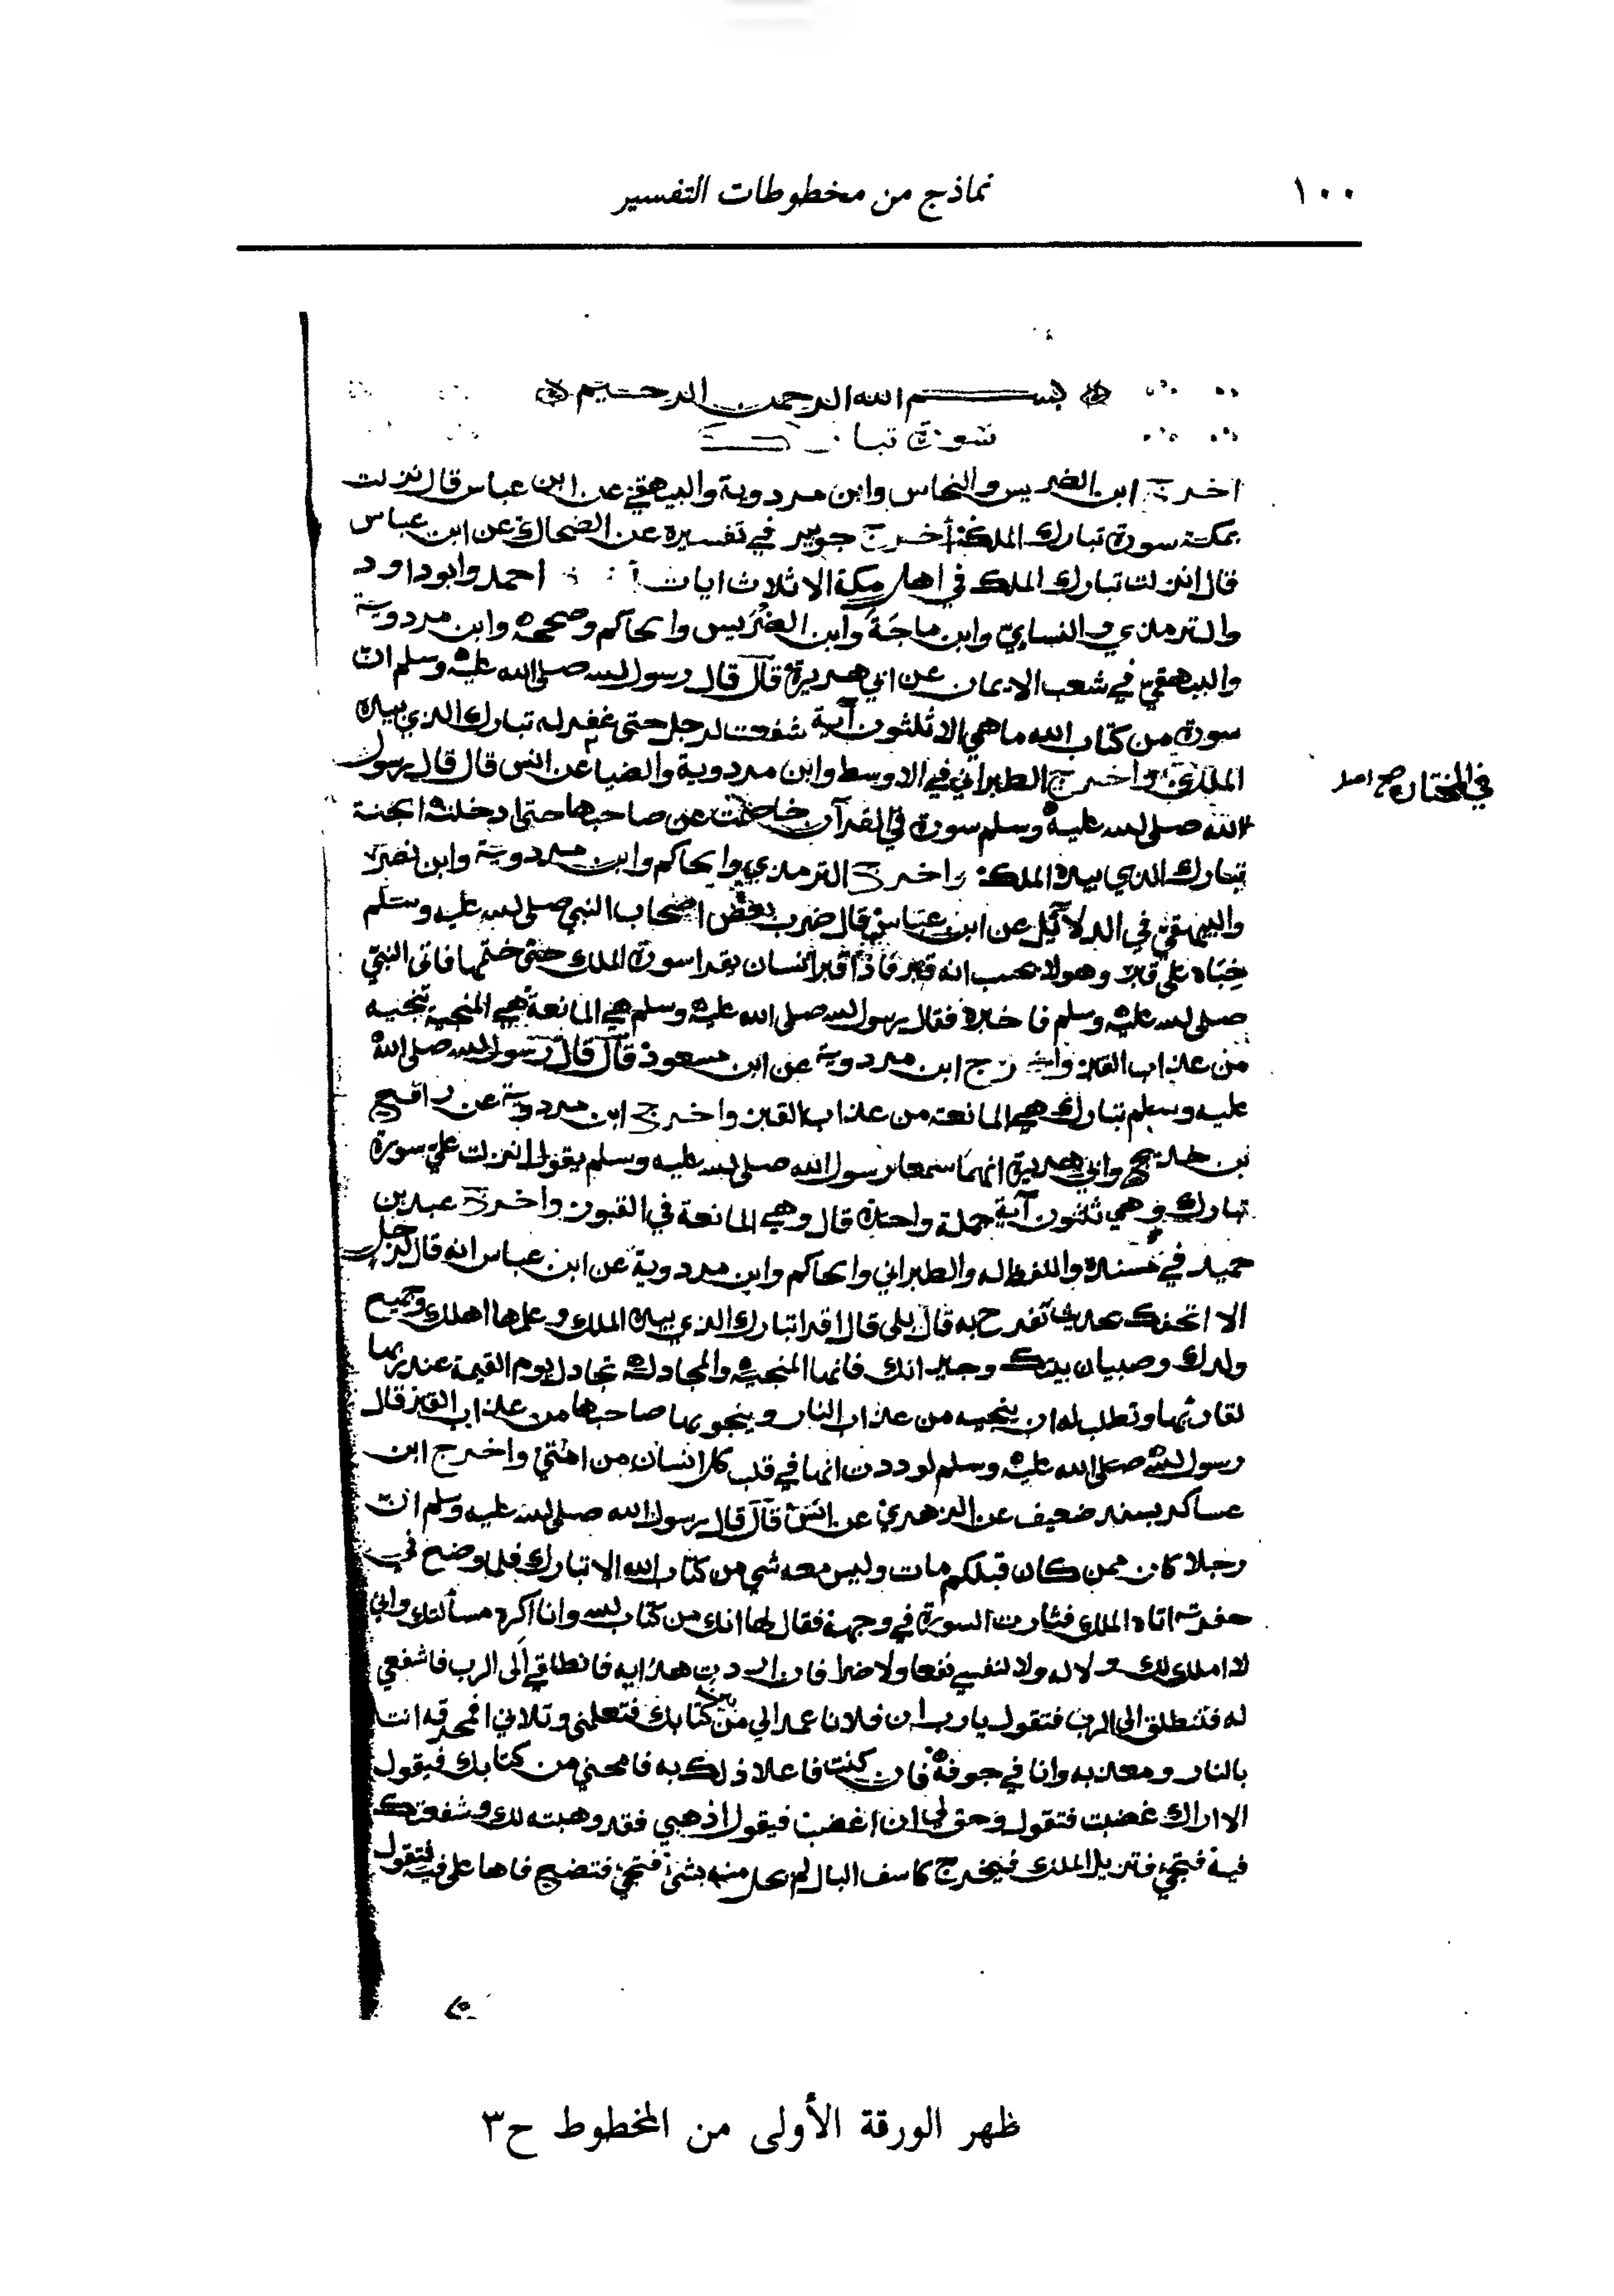 ١٠٠
نماذج من مخطوطات التفسير
بسم الله الرحمن الرحيم
سورة تبارك
اخرج ابن الضريس والنحاس وابن مردوية والبيهقي عن ابن عباس قال نزلت
بمكة سورة تبارك الملك أخرج جويبر في تفسيره عن الضحاك عن ابن عباس
قال انزلت تبارك الملك في اهل مكة الا ثلاث ايات احمد وابو داود
والترمذي والنساي وابن ماجة وابن الضريس والحاكم وصححه وابن مردوية
والبيهقي في شعب الايمان عن ابي هريرة قال قال رسول الله صلى الله عليه وسلم ان
سورة من كتاب الله ما هي الا ثلثون آية شفعت لرجل حتى غفر له تبارك الذي بيده
الملك واخرج الطبراني في الاوسط وابن مردوية والضيا عن انس قال قال رسول
في المختارة صح اصل
الله صلى الله عليه وسلم سورة في القرآن خاصمت عن صاحبها حتى ادخلته الجنة
تبارك الذي بيده الملك واخرج الترمذي والحاكم وابن مردوية وابن نصر
والبيهقي في الدلائل عن ابن عباس قال ضرب بعض اصحاب النبي صلى الله عليه وسلم
خباه على قبر وهو لا يحسب انه قبر فاذا قبر انسان يقرا سورة الملك حتى ختمها فاتى النبي
صلى الله عليه وسلم فاخبره فقال رسول الله صلى الله عليه وسلم هي المانعة هي المنجية تنجيه
من عذاب القبر واخرج ابن مردوية عن ابن مسعود قال قال رسول الله صلى الله
عليه وسلم تبارك هي المانعة من عذاب القبر واخرج ابن مردوية عن رافع
بن خديج وابي هريرة انهما سمعا رسول الله صلى الله عليه وسلم يقول انزلت علي سورة
تبارك وهي ثلثون آية جملة واحدة قال وهي المانعة في القبور واخرج عبد بن
حميد في مسنده واللفظ له والطبراني والحاكم وابن مردوية عن ابن عباس انه قال لرجل
الا اتحفك بحديث تفرح به قال بلى قال اقرا تبارك الذي بيده الملك وعلمها اهلك وجميع
ولدك وصبيان بيتك وجيرانك فانها المنجية والمجادلة تجادل يوم القيمة عند ربها
لقارئها وتطلب له ان ينجيه من عذاب النار وينجو بها صاحبها من عذاب القبر قال
رسول الله صلى الله عليه وسلم لوددت انها في قلب كل انسان من امتي واخرج ابن
عساكر بسند ضعيف عن الزهري عن انس قال قال رسول الله صلى الله عليه وسلم ان
رجلا كان ممن كان قبلكم مات وليس معه شي من كتاب الله الا تبارك فلما وضع في
حفرته اتاه الملك فثارت السورة في وجهه فقال لها انك من كتاب الله وانا اكره مسألتك واني
لا املك لك ولا له ولا لنفسي نفعا ولا ضرا فان اردت هذا به فانطلقي الى الرب فاشفعي
له فتنطلق الى الرب فتقول يا رب ان فلانا عمد الي من بين كتابك فتعلمني وتلاني افمحرقه انت
بالنار ومعذبه وانا في جوفه فان كنت فاعلا ذلك به فامحني من كتابك فيقول
الا اراك غضبت فتقول وحق لي ان اغضب فيقول اذهبي فقد وهبته لك وشفعتك
فيه فتجي فتزبر الملك فيخرج كاسف البال لم يحل منه بشئ فتجي فتضع فاها على فيه فتقول
ظهر الورقة الأولى من المخطوط ح٣